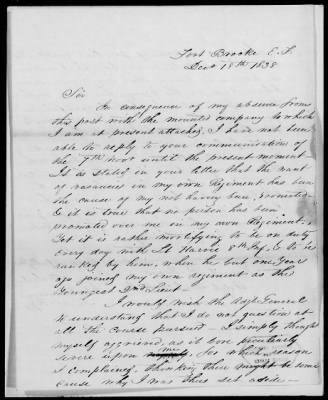 Fort Brooke E. F.
Decr 18th 1838
Sir
In consequence of my absence from
this post with the mounted company to which
I am at present attached, I have not been
able to reply to your communication of
the 7th Novr until the present moment
It is stated in your letter that the want
of vacancies in my own Regiment has been
the cause of my not having been promoted
& it is true that no person has been
promoted over me in my own Regiment.
Yet it is rather mortifying to be on duty
every day with Lt Harvie 8th Inf. & to be
ranked by him, when he but one Year
ago joined my own regiment as the
Youngest 2nd Lieut.
I would wish the Adjt General
to understand that I do not question at
all the course pursued - I simply thought
myself aggrieved, as it bore peculiarly
severe upon me, for which reason
I complained, thinking there might be some
cause why I was thus set aside -